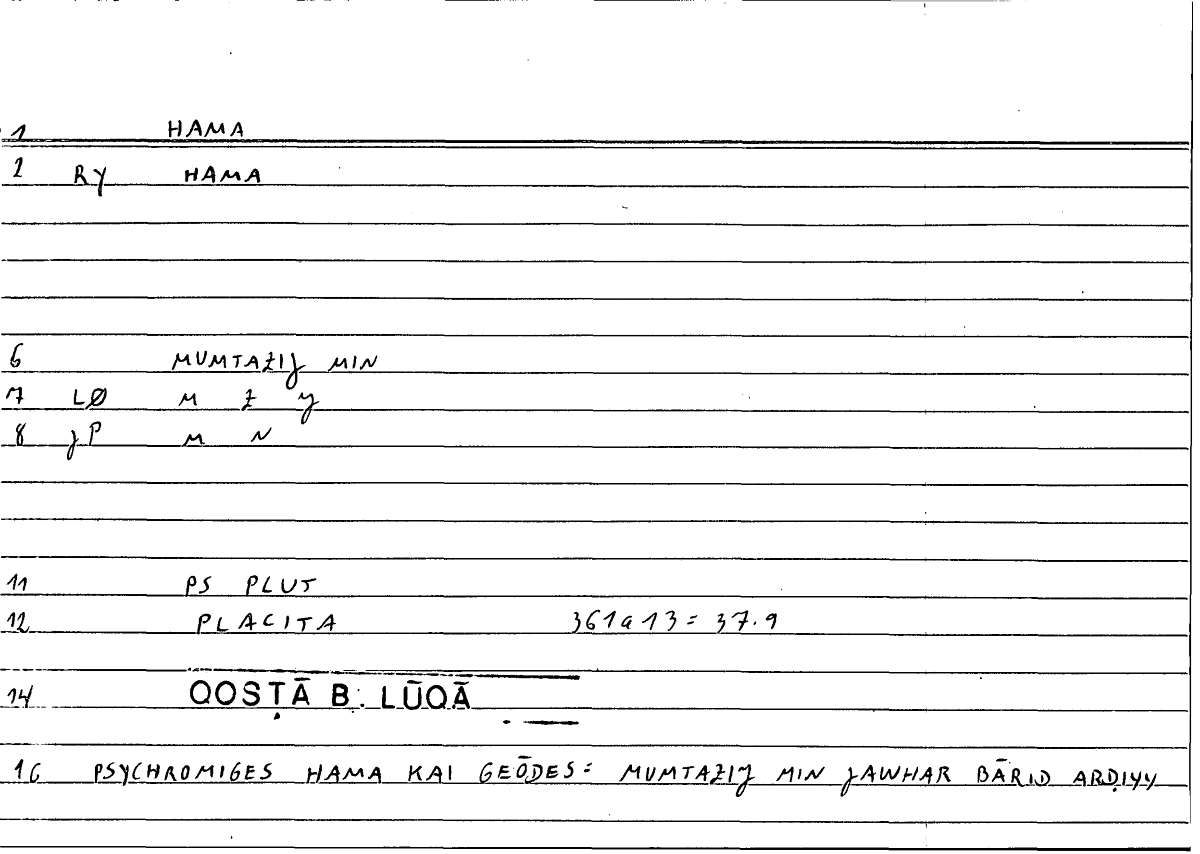 1 HAMA
2 RY HAMA
6 MUMTAZIJ MIN
7 LØ M Z J
8 JP M N
11 PS PLUT
12 PLACITA 361a13 = 37.9
14 QOSṬĀ B. LŪQĀ
16 PSYCHROMIGES HAMA KAI GEŌDES = MUMTAZIJ MIN JAWHAR BĀRID ARḌIYY